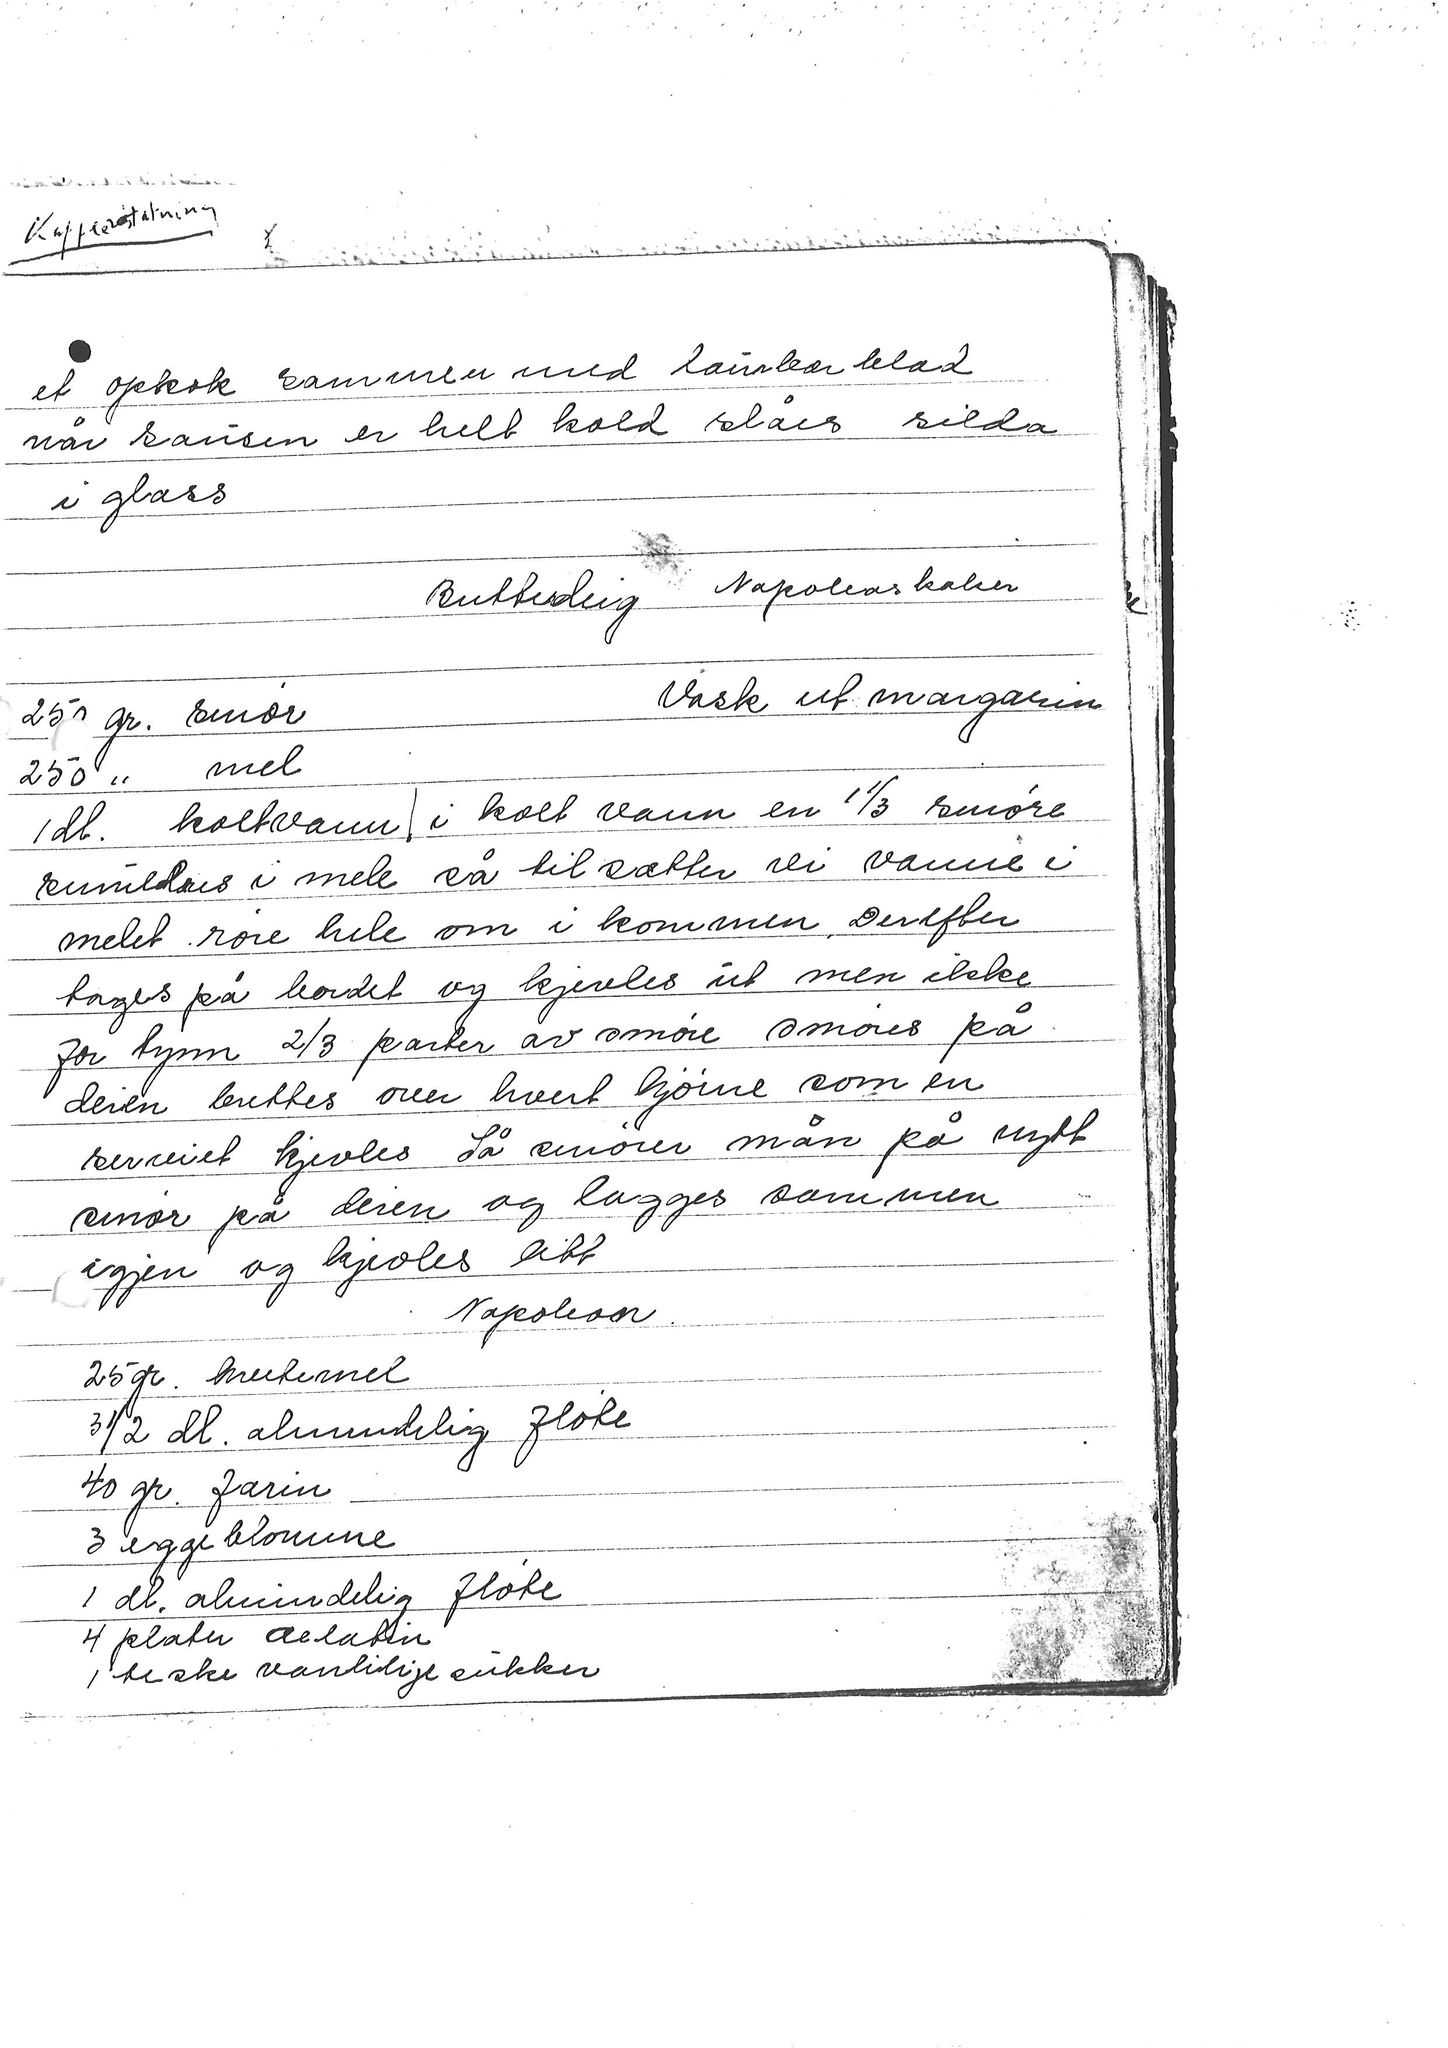 Kaffeerstatning
et opkok sammen med laurbærblad
når sausen er helt kold slåes silda
i glass
Butterdeig Napoleonskaker
250 gr. smör Vask ut margarin
250 " mel
1 dl. koltvann i kolt vann en 1/3 smöre
smuldres i mele så tilsætter vi vanne i
melet. röre hele om i kommen. Derefter
tages på bordet og kjevles ut men ikke
for tynn 2/3 parter av smöre smöres på
deien brettes over hvert hjörne som en
serviet kjevles Så smörer mån på nytt
smör på deien og lagges sammen
igjen og kjevles litt
Napoleon.
25 gr. hvetemel
3 1/2 dl. almindelig flöte
40 gr. farin
3 eggeblomme
1 dl. almindelig flöte
4 plater Gelatin
1 teske vanlilije sukker